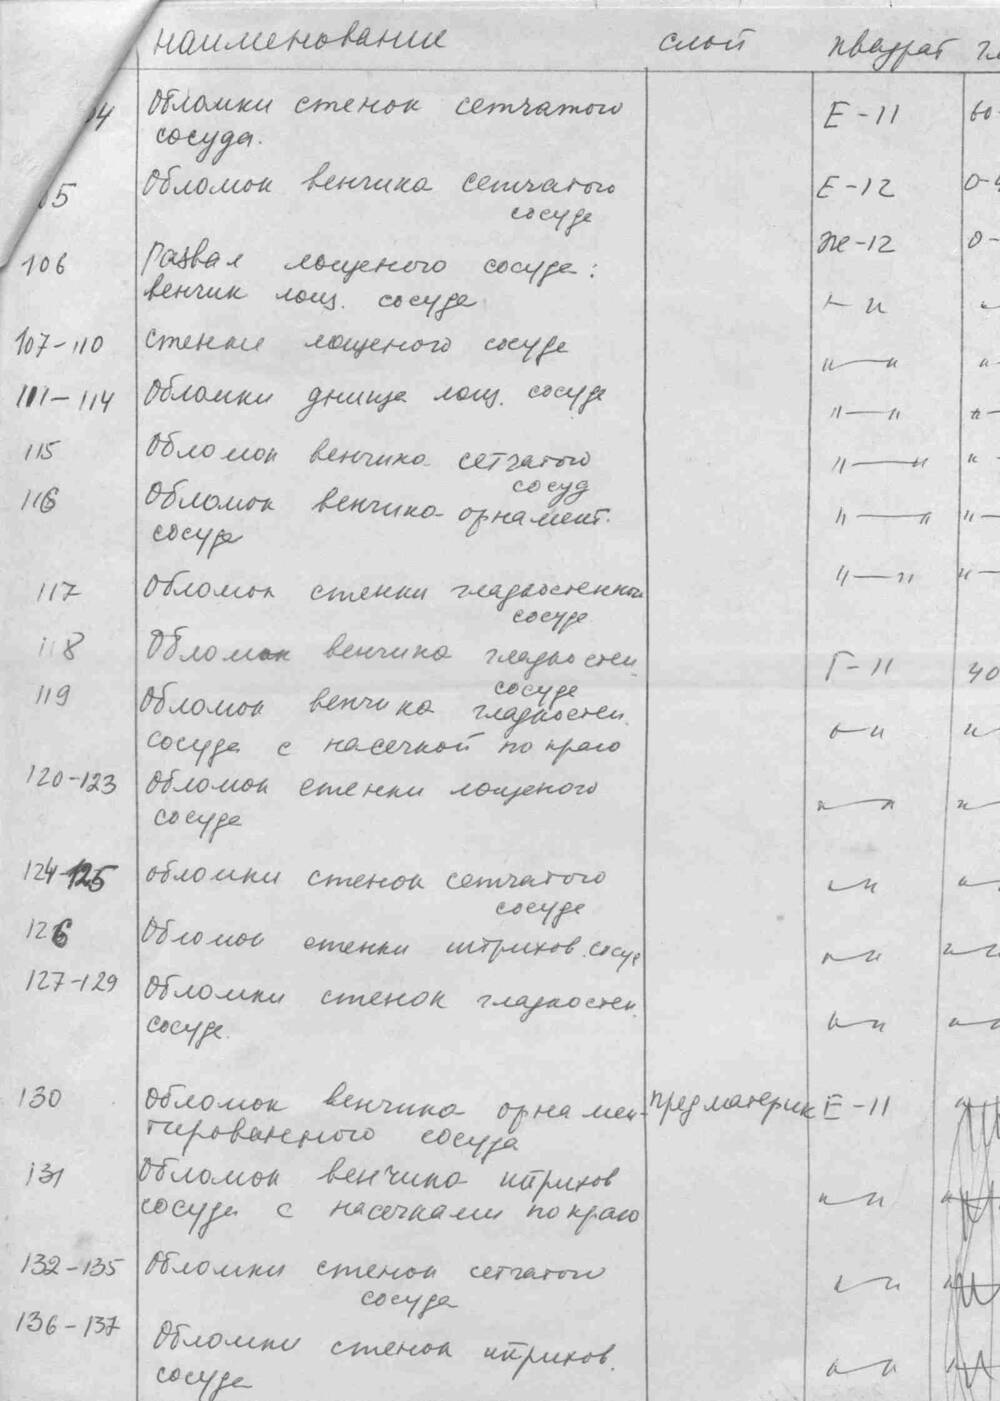 наименование слой квадрат
Обломки стенок сетчатого Е-11 60-
сосуда.
Обломок венчика сетчатого Е-12
сосуда
106 Развал лощеного сосуда: Ж-12 0-
венчик лощ. сосуда —"—
107-110 Стенки лощеного сосуда "—"
111-114 Обломки днища лощ. сосуда "—"
115 Обломок венчика сетчатого "—"
сосуд
116 Обломок венчика орнамент. "—"
сосуда
117 Обломок стенки гладкостенной "—"
сосуда
118 Обломок венчика гладкостен. Г-11 40
сосуда
119 Обломок венчика гладкостен. "—"
сосуда с насечкой по краю
120-123 Обломок стенки лощеного "—"
сосуда
124-125 обломки стенок сетчатого "—"
сосуда
126 Обломок стенки штрихов. сосуд "—"
127-129 Обломки стенок гладкостен. "—"
сосуда.
130 Обломок венчика орнамен- предматерик Е-11
тированного сосуда
131 Обломок венчика штрихов "—"
сосуда с насечками по краю
132-135 Обломки стенок сетчатого "—"
сосуда
136-137 Обломки стенок штрихов. "—"
сосуда